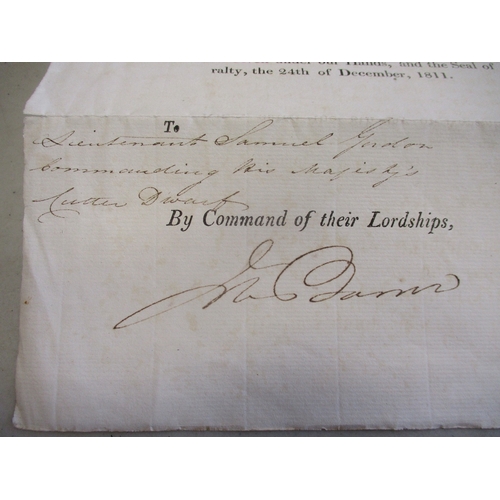 under our Hands, and the Seal of
ralty, the 24th of December, 1811.
To
Lieutenant Samuel Gordon
Commanding His Majesty's
Cutter Dwarf
By Command of their Lordships,
Jn Barrow